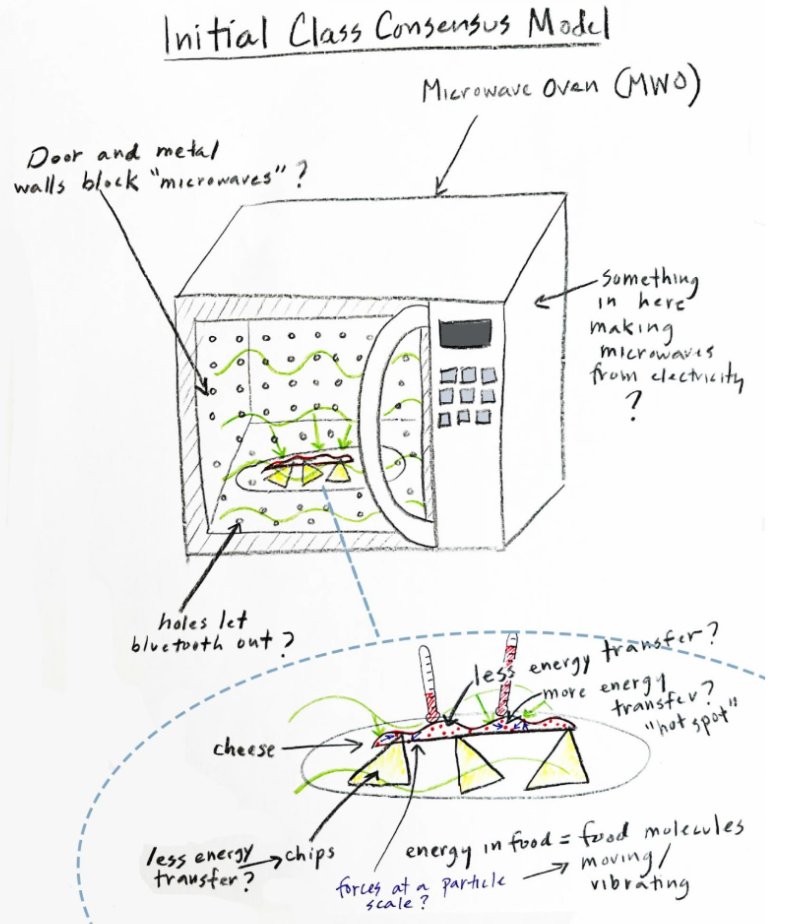 Initial Class Consensus Model
Microwave Oven (MWO)
Door and metal
walls block "microwaves"?
something
in here
making
microwaves
from electricity
?
holes let
bluetooth out?
less energy transfer?
more energy
transfer?
"hot spot"
cheese
less energy
transfer?
chips
forces at a particle
scale?
energy in food = food molecules
moving/
vibrating